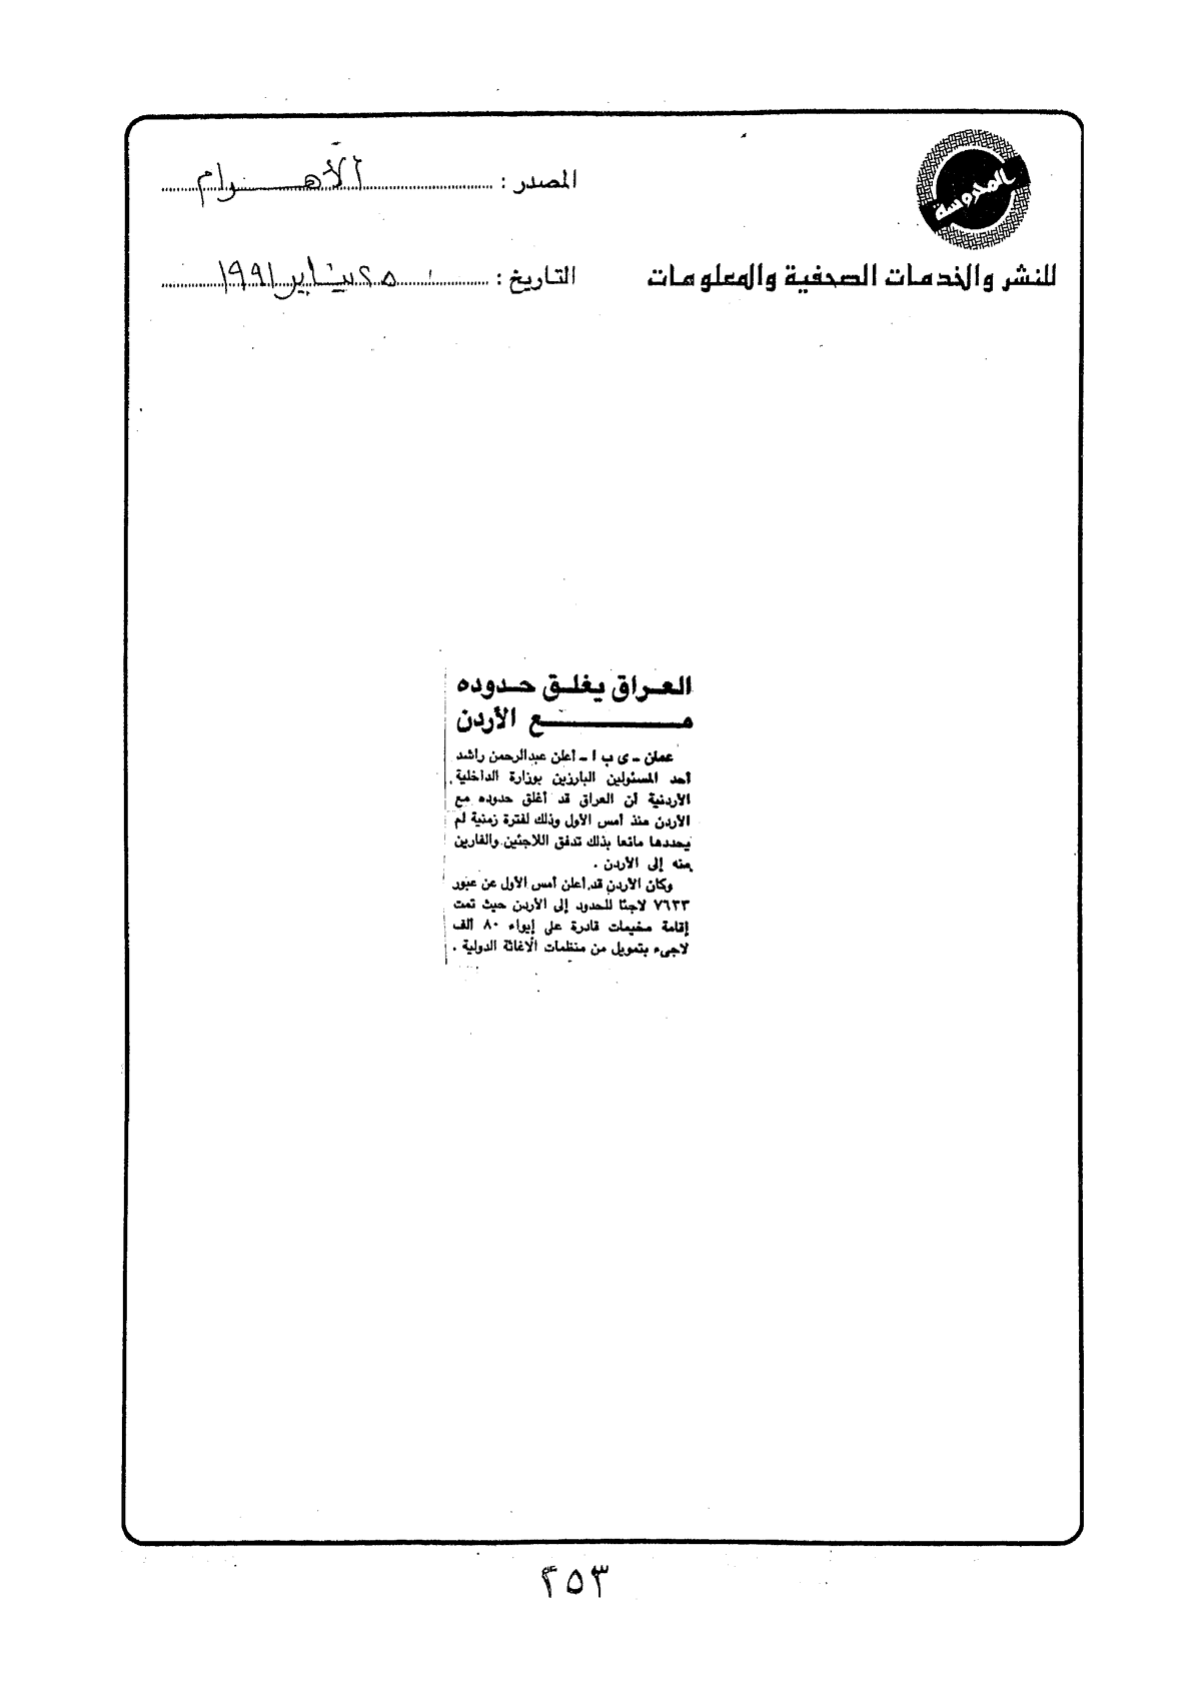 المحروسة
المصدر : الأهرام
للنشر والخدمات الصحفية والمعلومات
التاريخ : ٢٥ يناير ١٩٩١
العراق يغلق حدوده
مع الأردن
عمان - ى ب ا - أعلن عبدالرحمن راشد
أحد المسئولين البارزين بوزارة الداخلية
الأردنية أن العراق قد أغلق حدوده مع
الأردن منذ أمس الأول وذلك لفترة زمنية لم
يحددها مانعا بذلك تدفق اللاجئين والفارين
منه إلى الأردن .
وكان الأردن قد أعلن أمس الأول عن عبور
٧٦٢٣ لاجئا للحدود إلى الأردن حيث تمت
إقامة مخيمات قادرة على إيواء ٨٠ ألف
لاجىء بتمويل من منظمات الاغاثة الدولية .
٢٥٣